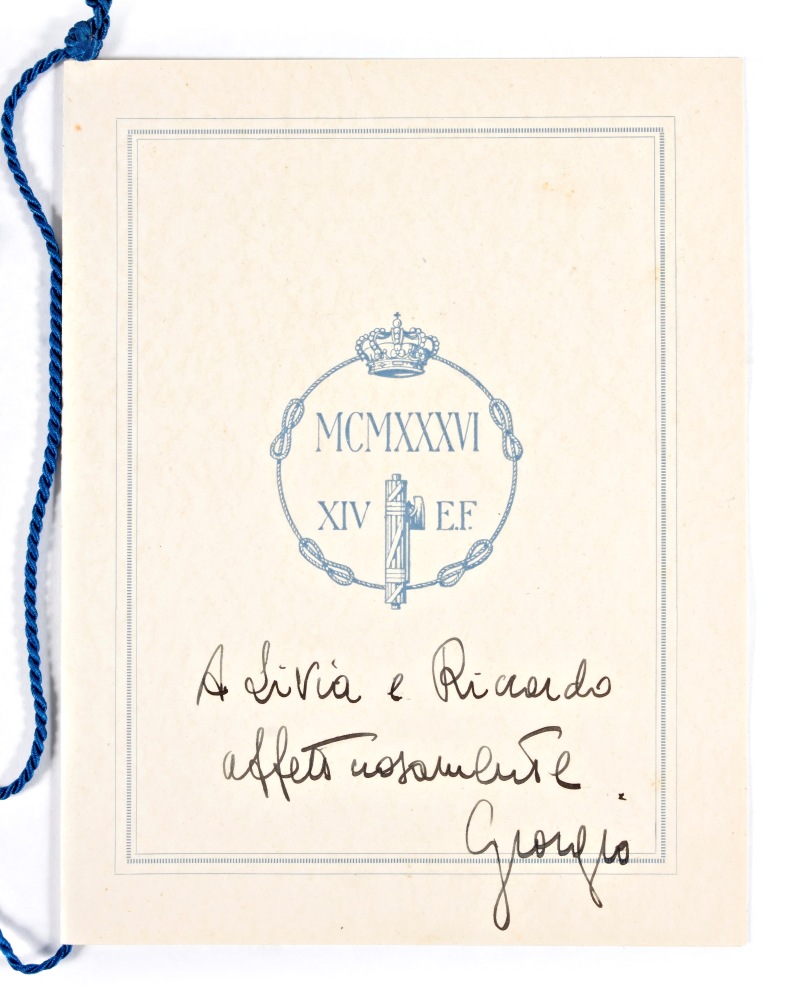 MCMXXXVI
XIV E.F.
A Livia e Riccardo
affettuosamente
Giorgio